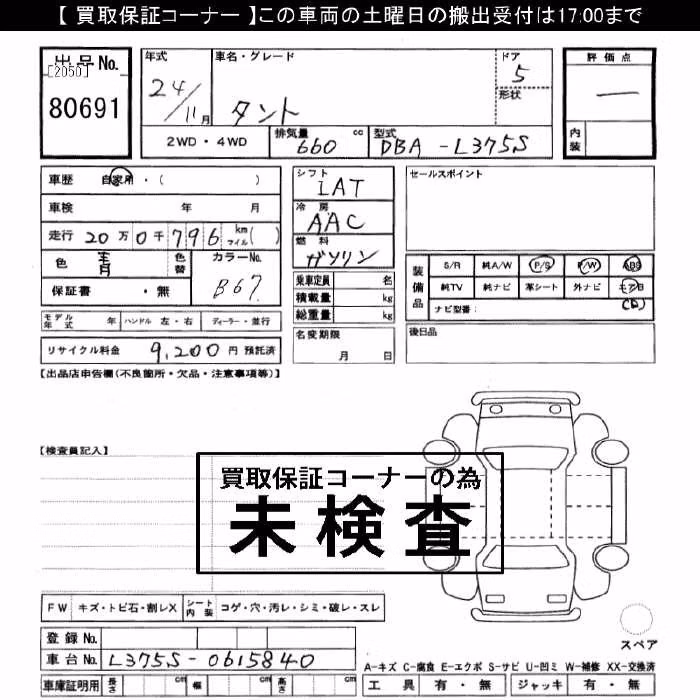 【 買取保証コーナー 】この車両の土曜日の搬出受付は17:00まで
出品No.
[2050]
80691
年式
24/11月
車名・グレード
タント
ドア
5
形状
評価点
―
内装
2WD・4WD
排気量
660 cc
型式
DBA-L375S
車歴 自家用・( )
車検 年 月
走行 20万0千796 km マイル( )
色 青 色替
カラーNo.
B67
保証書 ・ 無
モデル年式 年 ハンドル 左・右 ディーラー・並行
リサイクル料金 9,200 円 預託済
シフト
IAT
冷房
AAC
燃料
ガソリン
乗車定員 名
積載量 kg
総重量 kg
名変期限
月 日
セールスポイント
装備品
S/R 純A/W P/S P/W ABS
純TV 純ナビ 革シート 外ナビ エアB
ナビ型番: (D)
後日品
【出品店申告欄(不良箇所・欠品・注意事項等)】
【検査員記入】
買取保証コーナーの為
未検査
FW キズ・トビ石・割レX シート内装 コゲ・穴・汚レ・シミ・破レ・スレ
登録No.
車台No. L375S-0615840
車庫証明用 長さ cm 幅 cm 高さ cm
スペア
A-キズ C-腐食 E-エクボ S-サビ U-凹ミ W-補修 XX-交換済
工具 有・無 ジャッキ 有・無